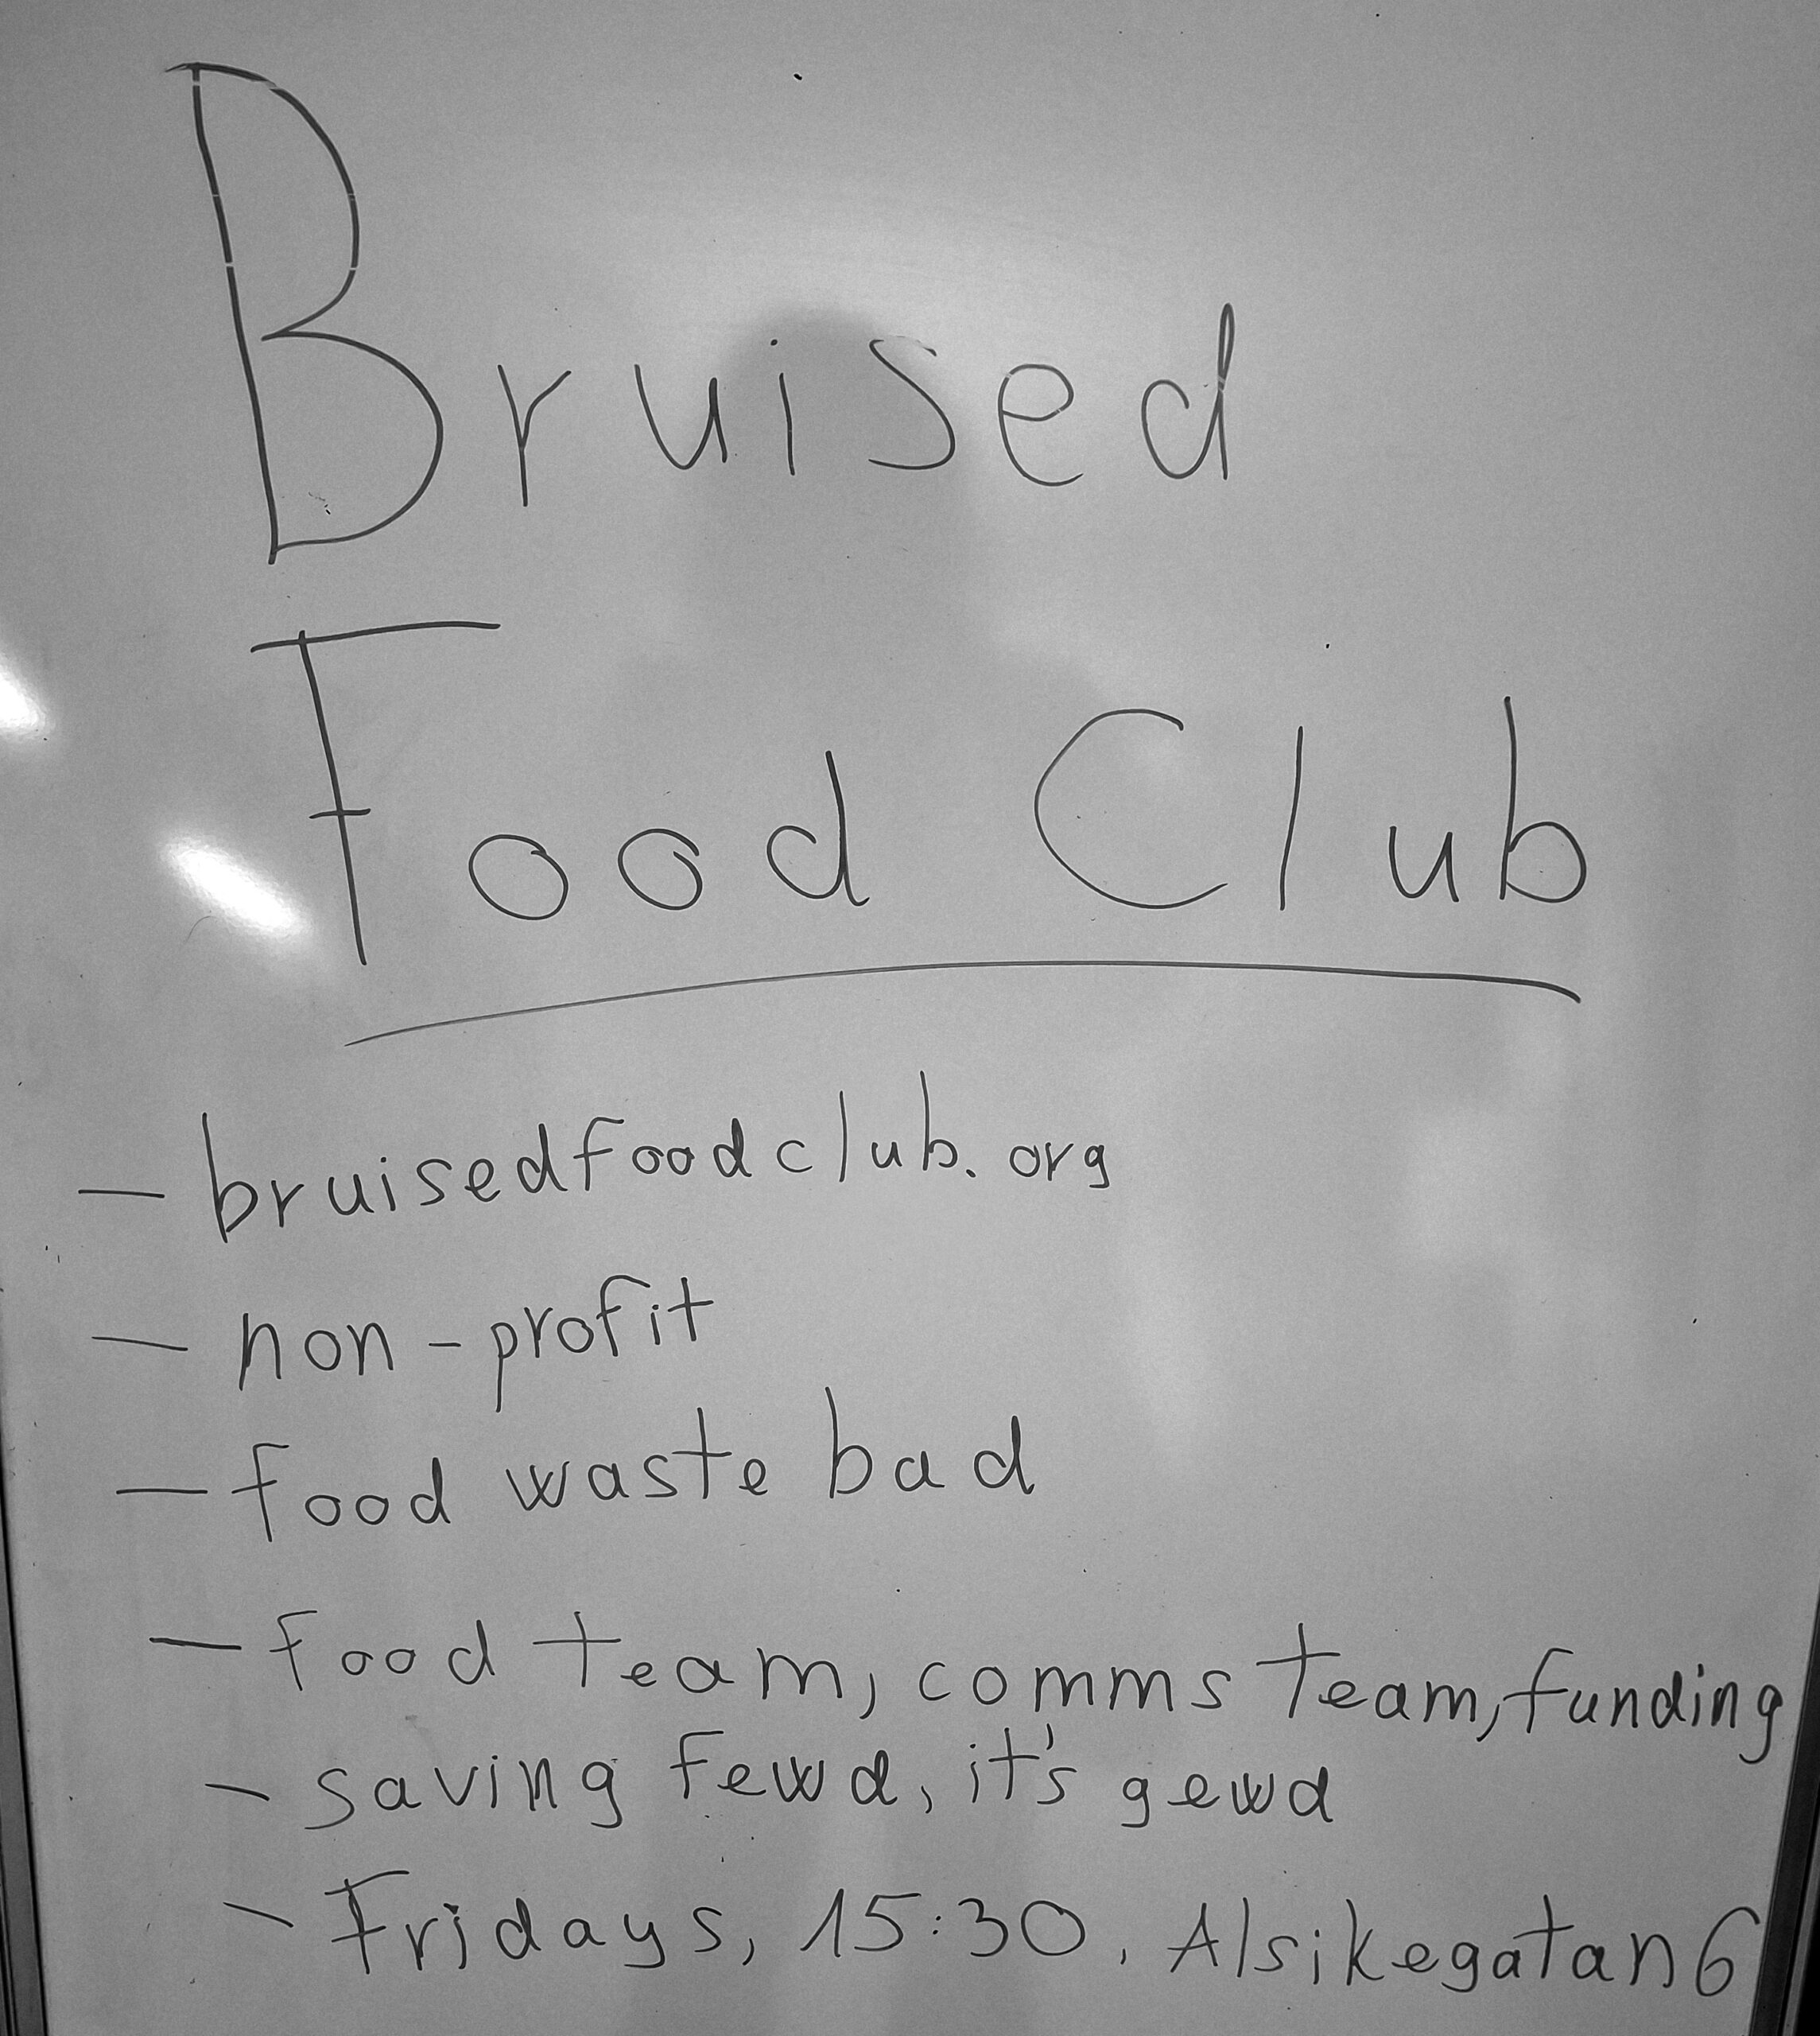 Bruised
Food Club
- bruisedfoodclub.org
- non-profit
- food waste bad
- food team, comms team, funding
- saving fewd, it's gewd
- Fridays, 15:30, Alsikegatan 6